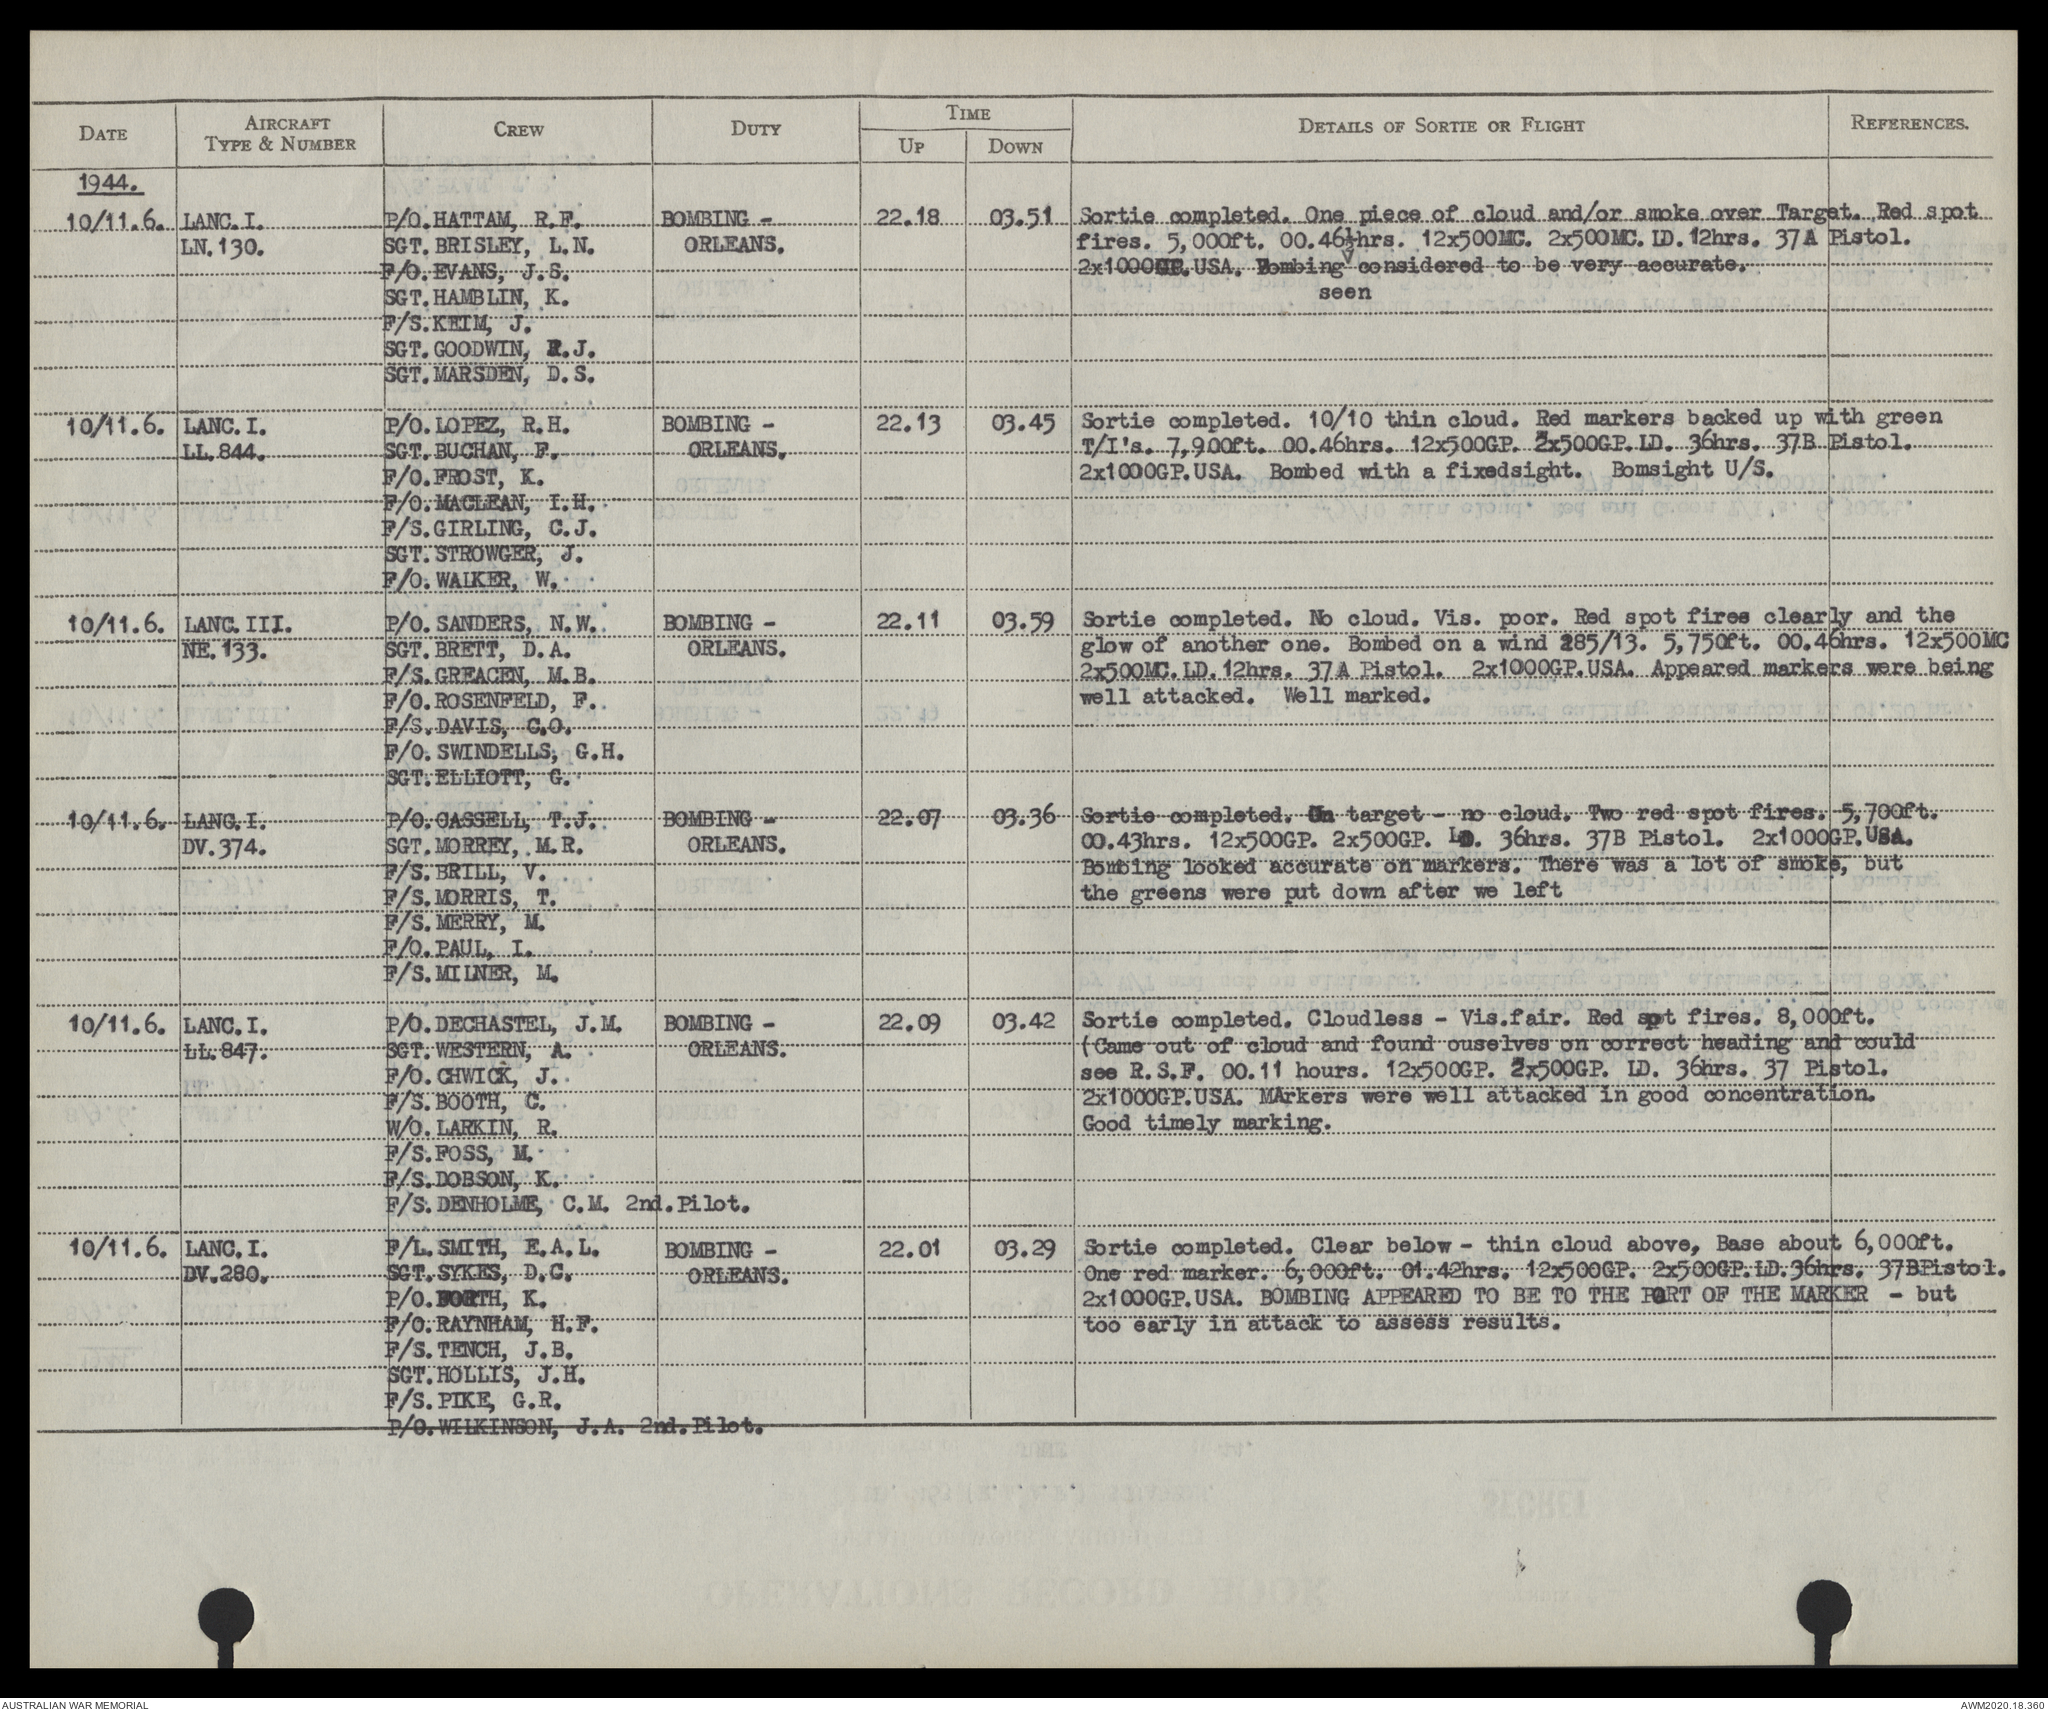 DATE AIRCRAFT TYPE & NUMBER CREW DUTY TIME UP DOWN DETAILS OF SORTIE OR FLIGHT REFERENCES.
1944.
10/11.6. LANC.I. P/O.HATTAM, R.F. BOMBING - 22.18 03.51 Sortie completed. One piece of cloud and/or smoke over Target. Red spot
LN.130. SGT.BRISLEY, L.N. ORLEANS. fires. 5,000ft. 00.46½hrs. 12x500MC. 2x500MC.LD.12hrs. 37A Pistol.
F/O.EVANS, J.S. 2x1000GP.USA. Bombing considered to be very accurate.
SGT.HAMBLIN, K. seen
F/S.KEIM, J.
SGT.GOODWIN, R.J.
SGT.MARSDEN, D.S.
10/11.6. LANC.I. P/O.LOPEZ, R.H. BOMBING - 22.13 03.45 Sortie completed. 10/10 thin cloud. Red markers backed up with green
LL.844. SGT.BUCHAN, F. ORLEANS. T/I's. 7,900ft. 00.46hrs. 12x500GP. 2x500GP.LD. 36hrs. 37B Pistol.
F/O.FROST, K. 2x1000GP.USA. Bombed with a fixedsight. Bomsight U/S.
F/O.MACLEAN, I.H.
F/S.GIRLING, C.J.
SGT.STROWGER, J.
F/O.WALKER, W.
10/11.6. LANC.III. P/O.SANDERS, N.W. BOMBING - 22.11 03.59 Sortie completed. No cloud. Vis. poor. Red spot fires clearly and the
NE.133. SGT.BRETT, D.A. ORLEANS. glow of another one. Bombed on a wind 285/13. 5,750ft. 00.46hrs. 12x500MC
F/S.GREACEN, M.B. 2x500MC.LD.12hrs. 37A Pistol. 2x1000GP.USA. Appeared markers were being
F/O.ROSENFELD, F. well attacked. Well marked.
F/S.DAVIS, C.O.
F/O.SWINDELLS, G.H.
SGT.ELLIOTT, G.
10/11.6. LANC.I. P/O.CASSELL, T.J. BOMBING - 22.07 03.36 Sortie completed. On target - no cloud. Two red spot fires. 5,700ft.
DV.374. SGT.MORREY, M.R. ORLEANS. 00.43hrs. 12x500GP. 2x500GP. LD. 36hrs. 37B Pistol. 2x1000GP.USA.
F/S.BRILL, V. Bombing looked accurate on markers. There was a lot of smoke, but
F/S.MORRIS, T. the greens were put down after we left
F/S.MERRY, M.
F/O.PAUL, I.
F/S.MILNER, M.
10/11.6. LANC.I. P/O.DECHASTEL, J.M. BOMBING - 22.09 03.42 Sortie completed. Cloudless - Vis.fair. Red spot fires. 8,000ft.
LL.847. SGT.WESTERN, A. ORLEANS. (Came out of cloud and found ouselves on correct heading and could
F/O.CHWICK, J. see R.S.F. 00.11 hours. 12x500GP. 2x500GP. LD. 36hrs. 37 Pistol.
F/S.BOOTH, C. 2x1000GP.USA. MArkers were well attacked in good concentration.
W/O.LARKIN, R. Good timely marking.
F/S.FOSS, M.
F/S.DOBSON, K.
F/S.DENHOLME, C.M. 2nd.Pilot.
10/11.6. LANC.I. F/L.SMITH, E.A.L. BOMBING - 22.01 03.29 Sortie completed. Clear below - thin cloud above, Base about 6,000ft.
DV.280. SGT.SYKES, D.C. ORLEANS. One red marker. 6,000ft. 01.42hrs. 12x500GP. 2x500GP.LD.36hrs. 37BPistol.
P/O. K. 2x1000GP.USA. BOMBING APPEARED TO BE TO THE PORT OF THE MARKER - but
F/O.RAYNHAM, H.F. too early in attack to assess results.
F/S.TENCH, J.B.
SGT.HOLLIS, J.H.
F/S.PIKE, G.R.
P/O.WILKINSON, J.A. 2nd.Pilot.
AUSTRALIAN WAR MEMORIAL AWM2020.18.360